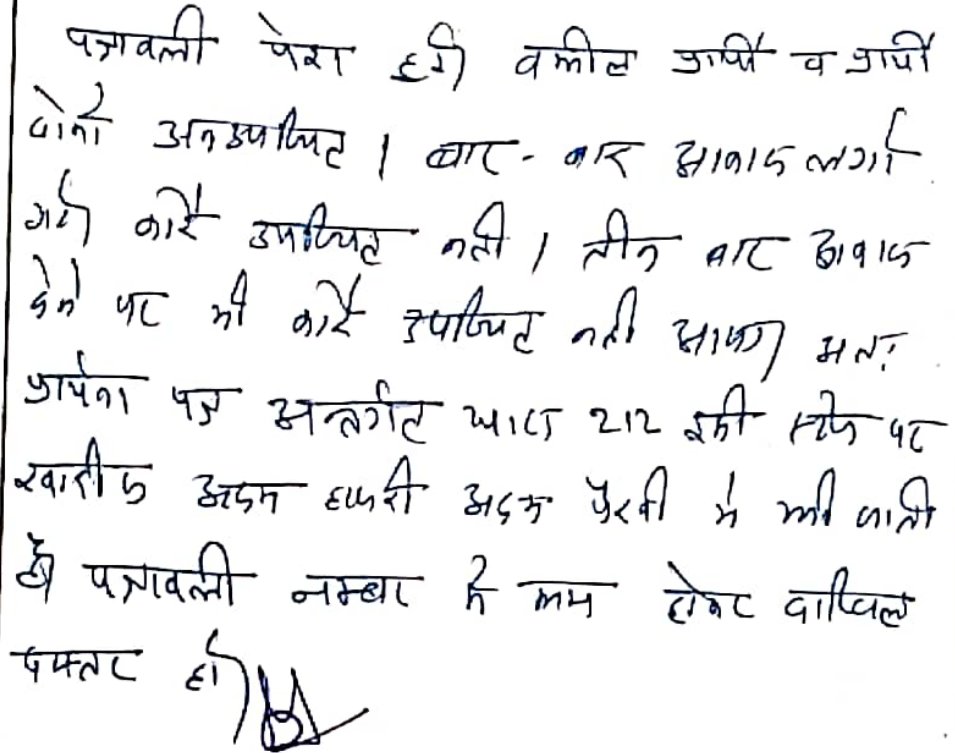 पत्रावली पेश हुई। वकील प्रार्थी व प्रार्थी
दोनों अनउपस्थित । बार - बार आवाज लगाई
गई। कोई उपस्थित नही । तीन बार आवाज
देने पर भी कोई उपस्थित नही आया। अतः
प्रार्थना पत्र अन्तर्गत धारा 212 इसी स्टेज पर
खारीज अदम हाजरी अदम पैरवी मे की जाती
है। पत्रावली नम्बर से कम होकर दाखिल
दफ्तर हो।